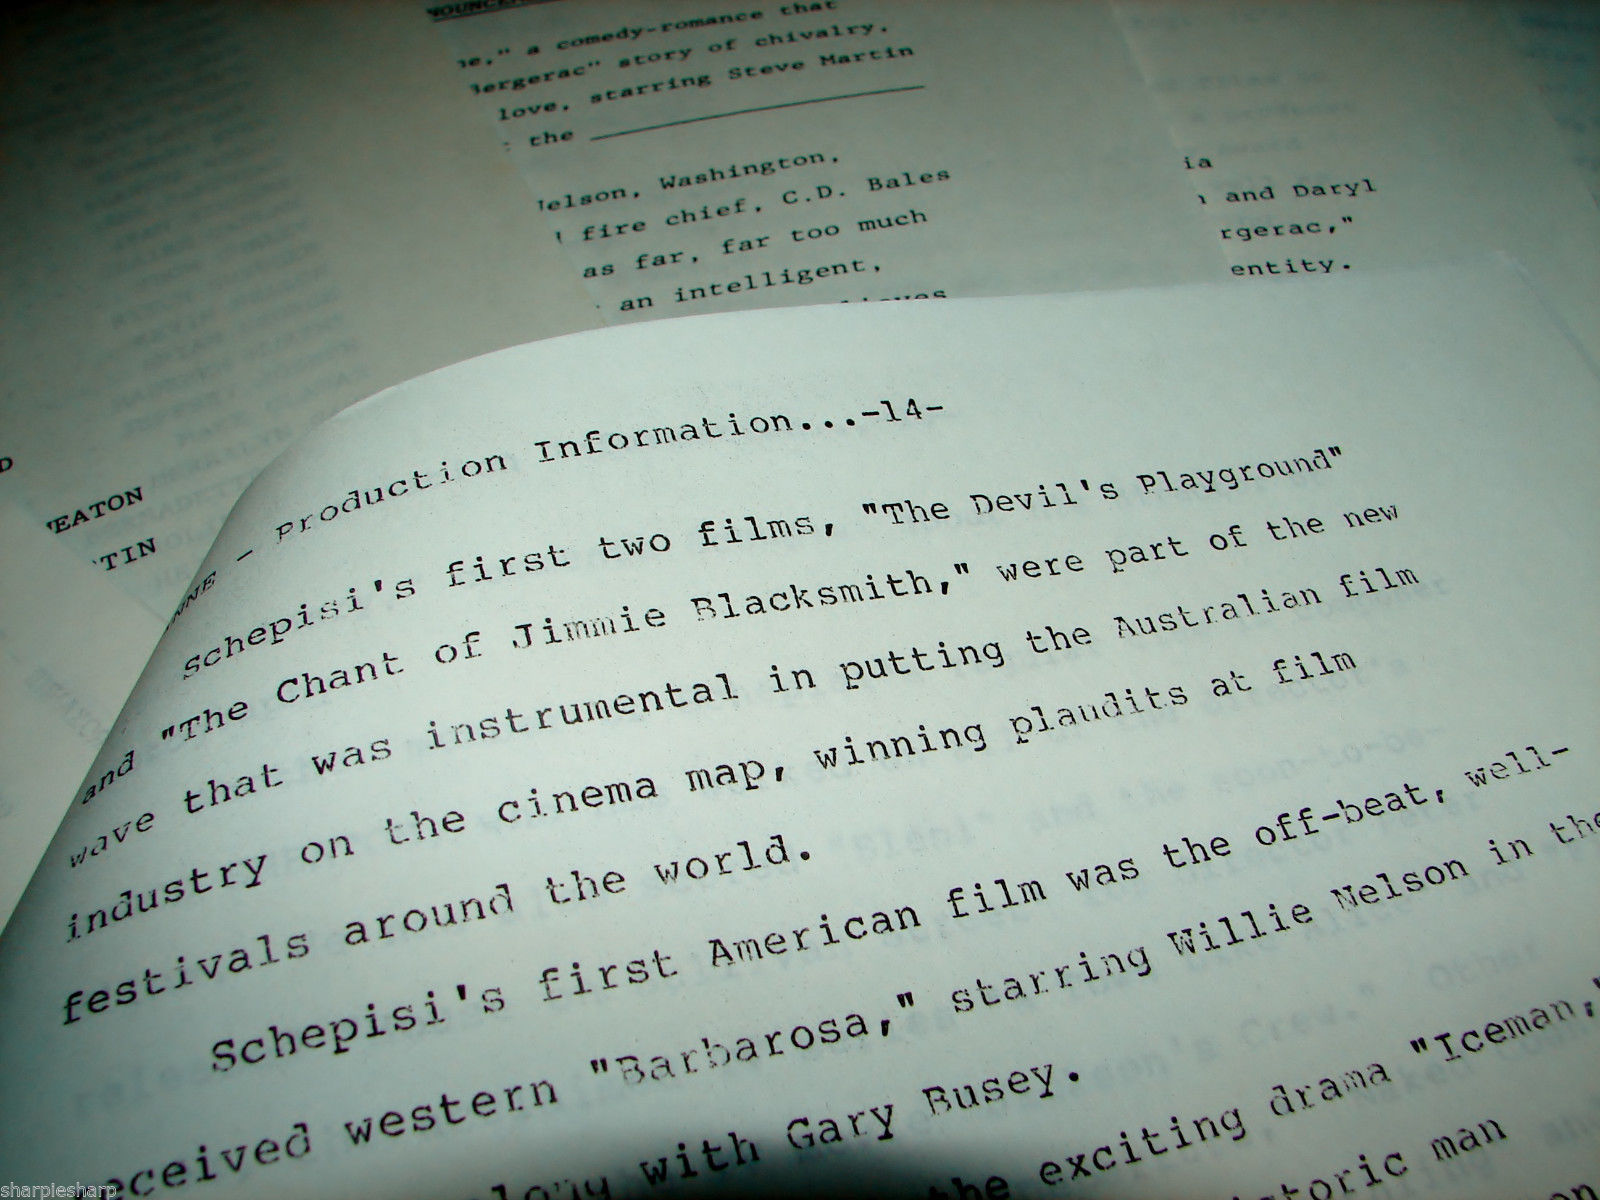 e," a comedy-romance that
Bergerac" story of chivalry,
love, starring Steve Martin
the
elson, Washington,
fire chief, C.D. Bales
as far, far too much
an intelligent,
ia
and Daryl
rgerac,"
entity.
EATON
TIN
NNE - Production Information...-14-
Schepisi's first two films, "The Devil's Playground"
and "The Chant of Jimmie Blacksmith," were part of the new
wave that was instrumental in putting the Australian film
industry on the cinema map, winning plaudits at film
festivals around the world.
Schepisi's first American film was the off-beat, well-
eceived western "Barbarosa," starring Willie Nelson in the
long with Gary Busey.
the exciting drama "Iceman,"
storic man
sharpiesharp